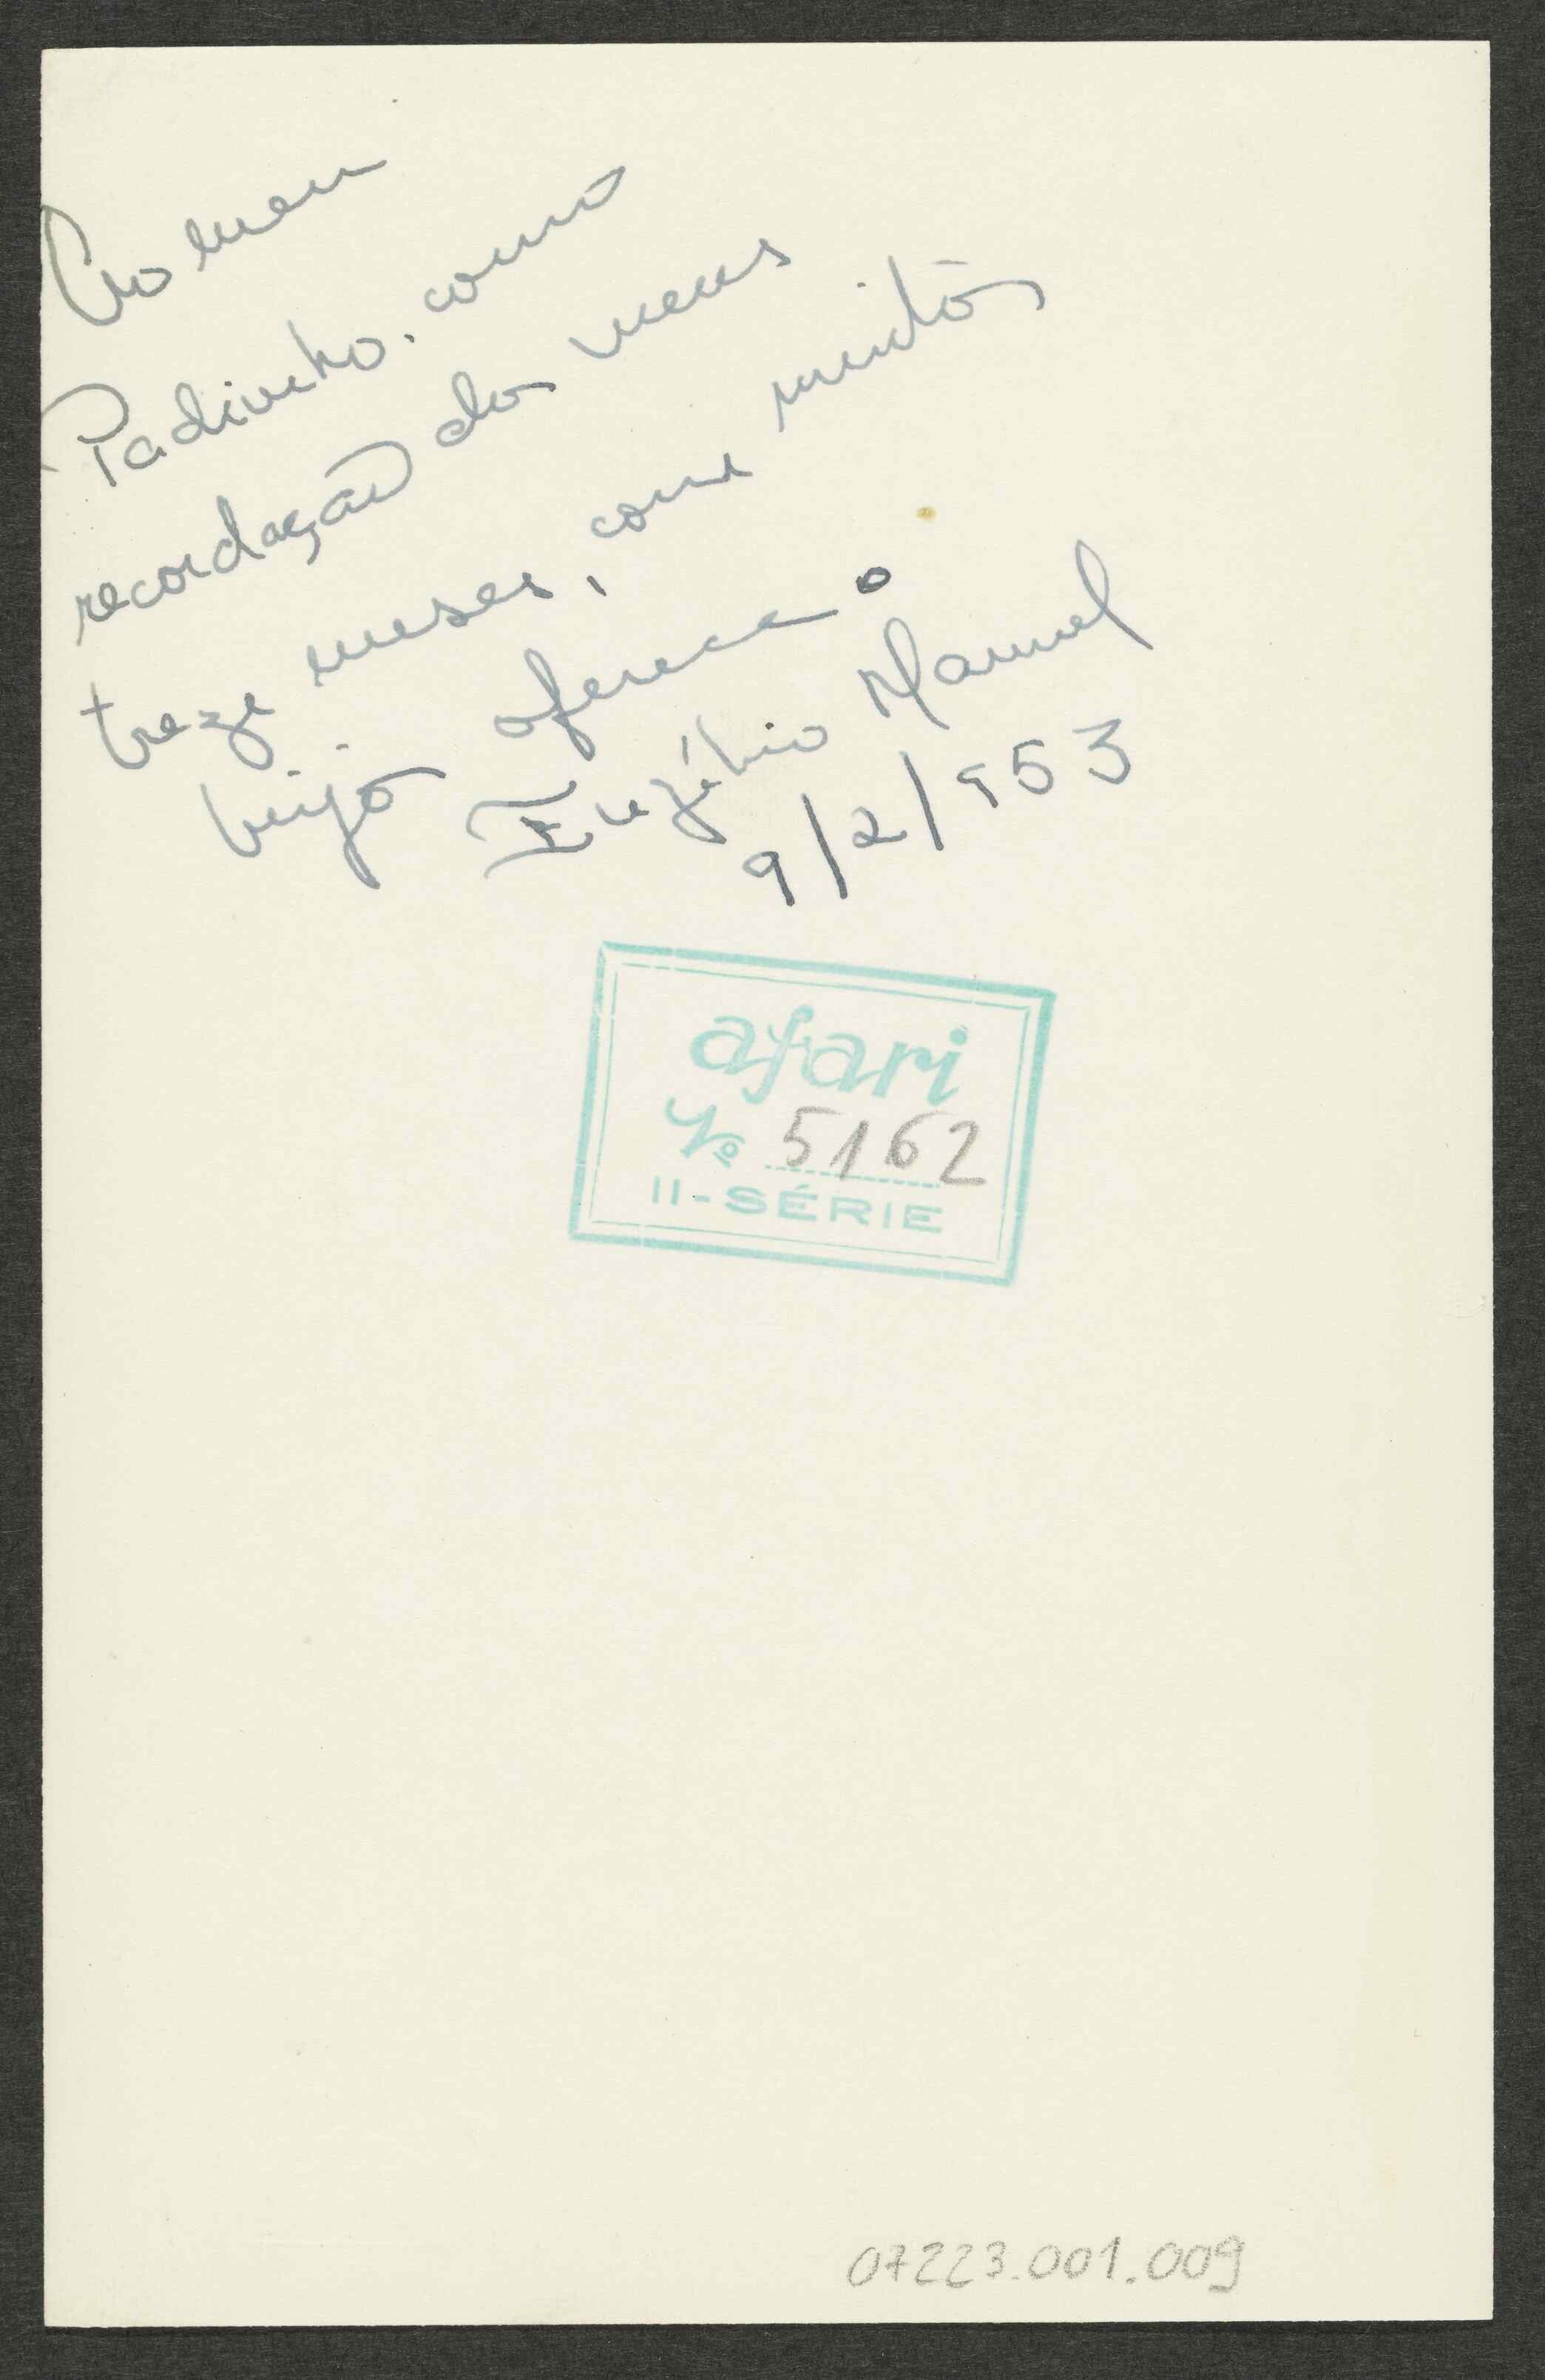 Ao meu
Padinho, como
recordação dos meus
treze meses, com muitos
beijos oferece o
Euzébio Manuel
9/2/953
afari
Nº 5162
II-SÉRIE
07223.001.009